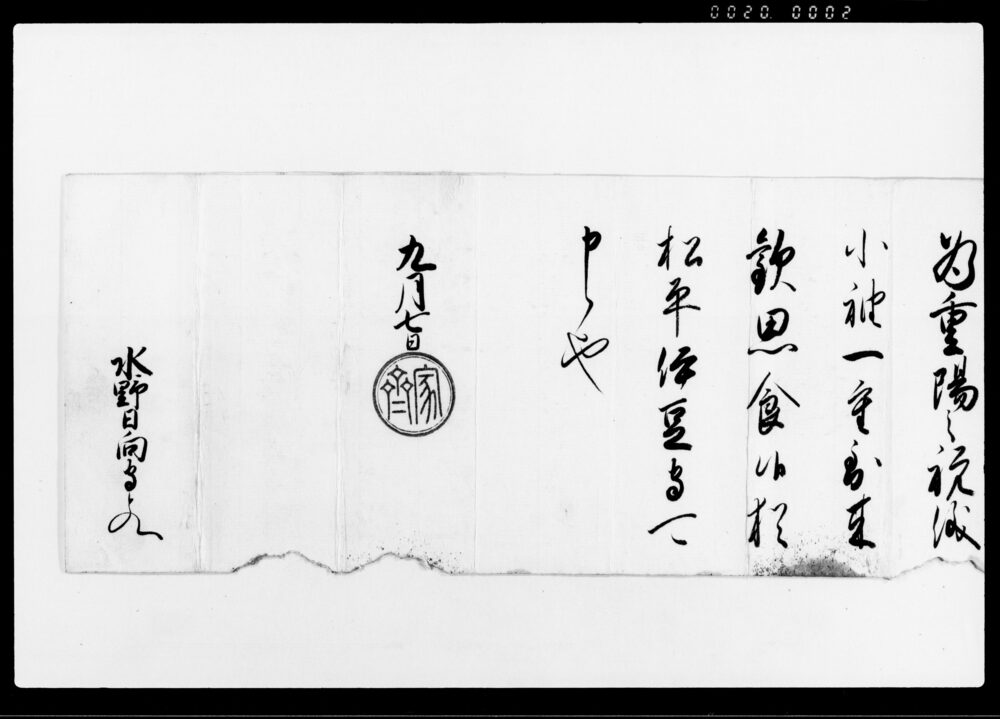 0020. 0002
為重陽之祝儀
小袖一重到来
歓思食候猶
松平伊豆守可
申候也
九月七日
家齊
水野日向守とのへ